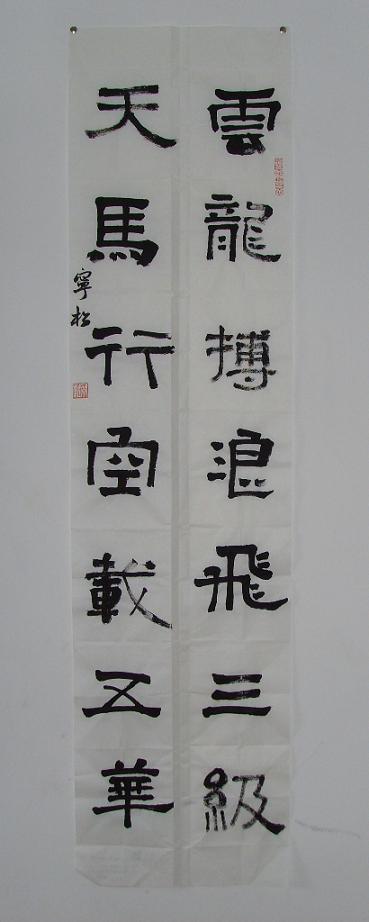 雲龍搏浪飛三級
天馬行空載五華
寧松